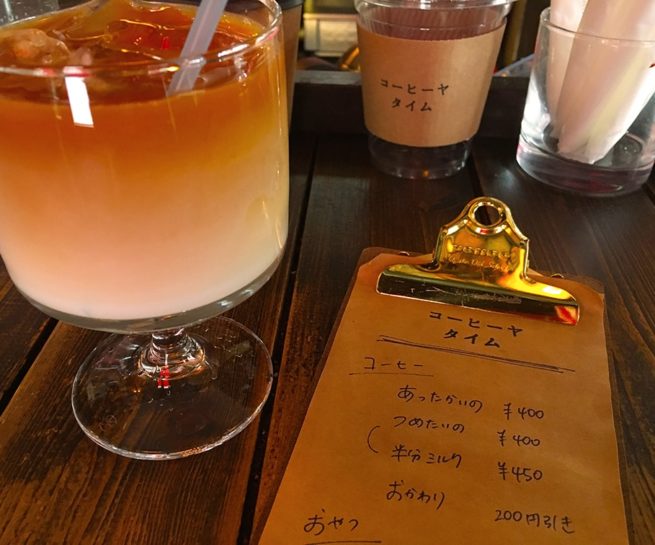 コーヒーヤ
タイム
コーヒーヤ
タイム
コーヒー
あったかいの ¥400
つめたいの ¥400
半分ミルク ¥450
おかわり 200円引き
おやつ